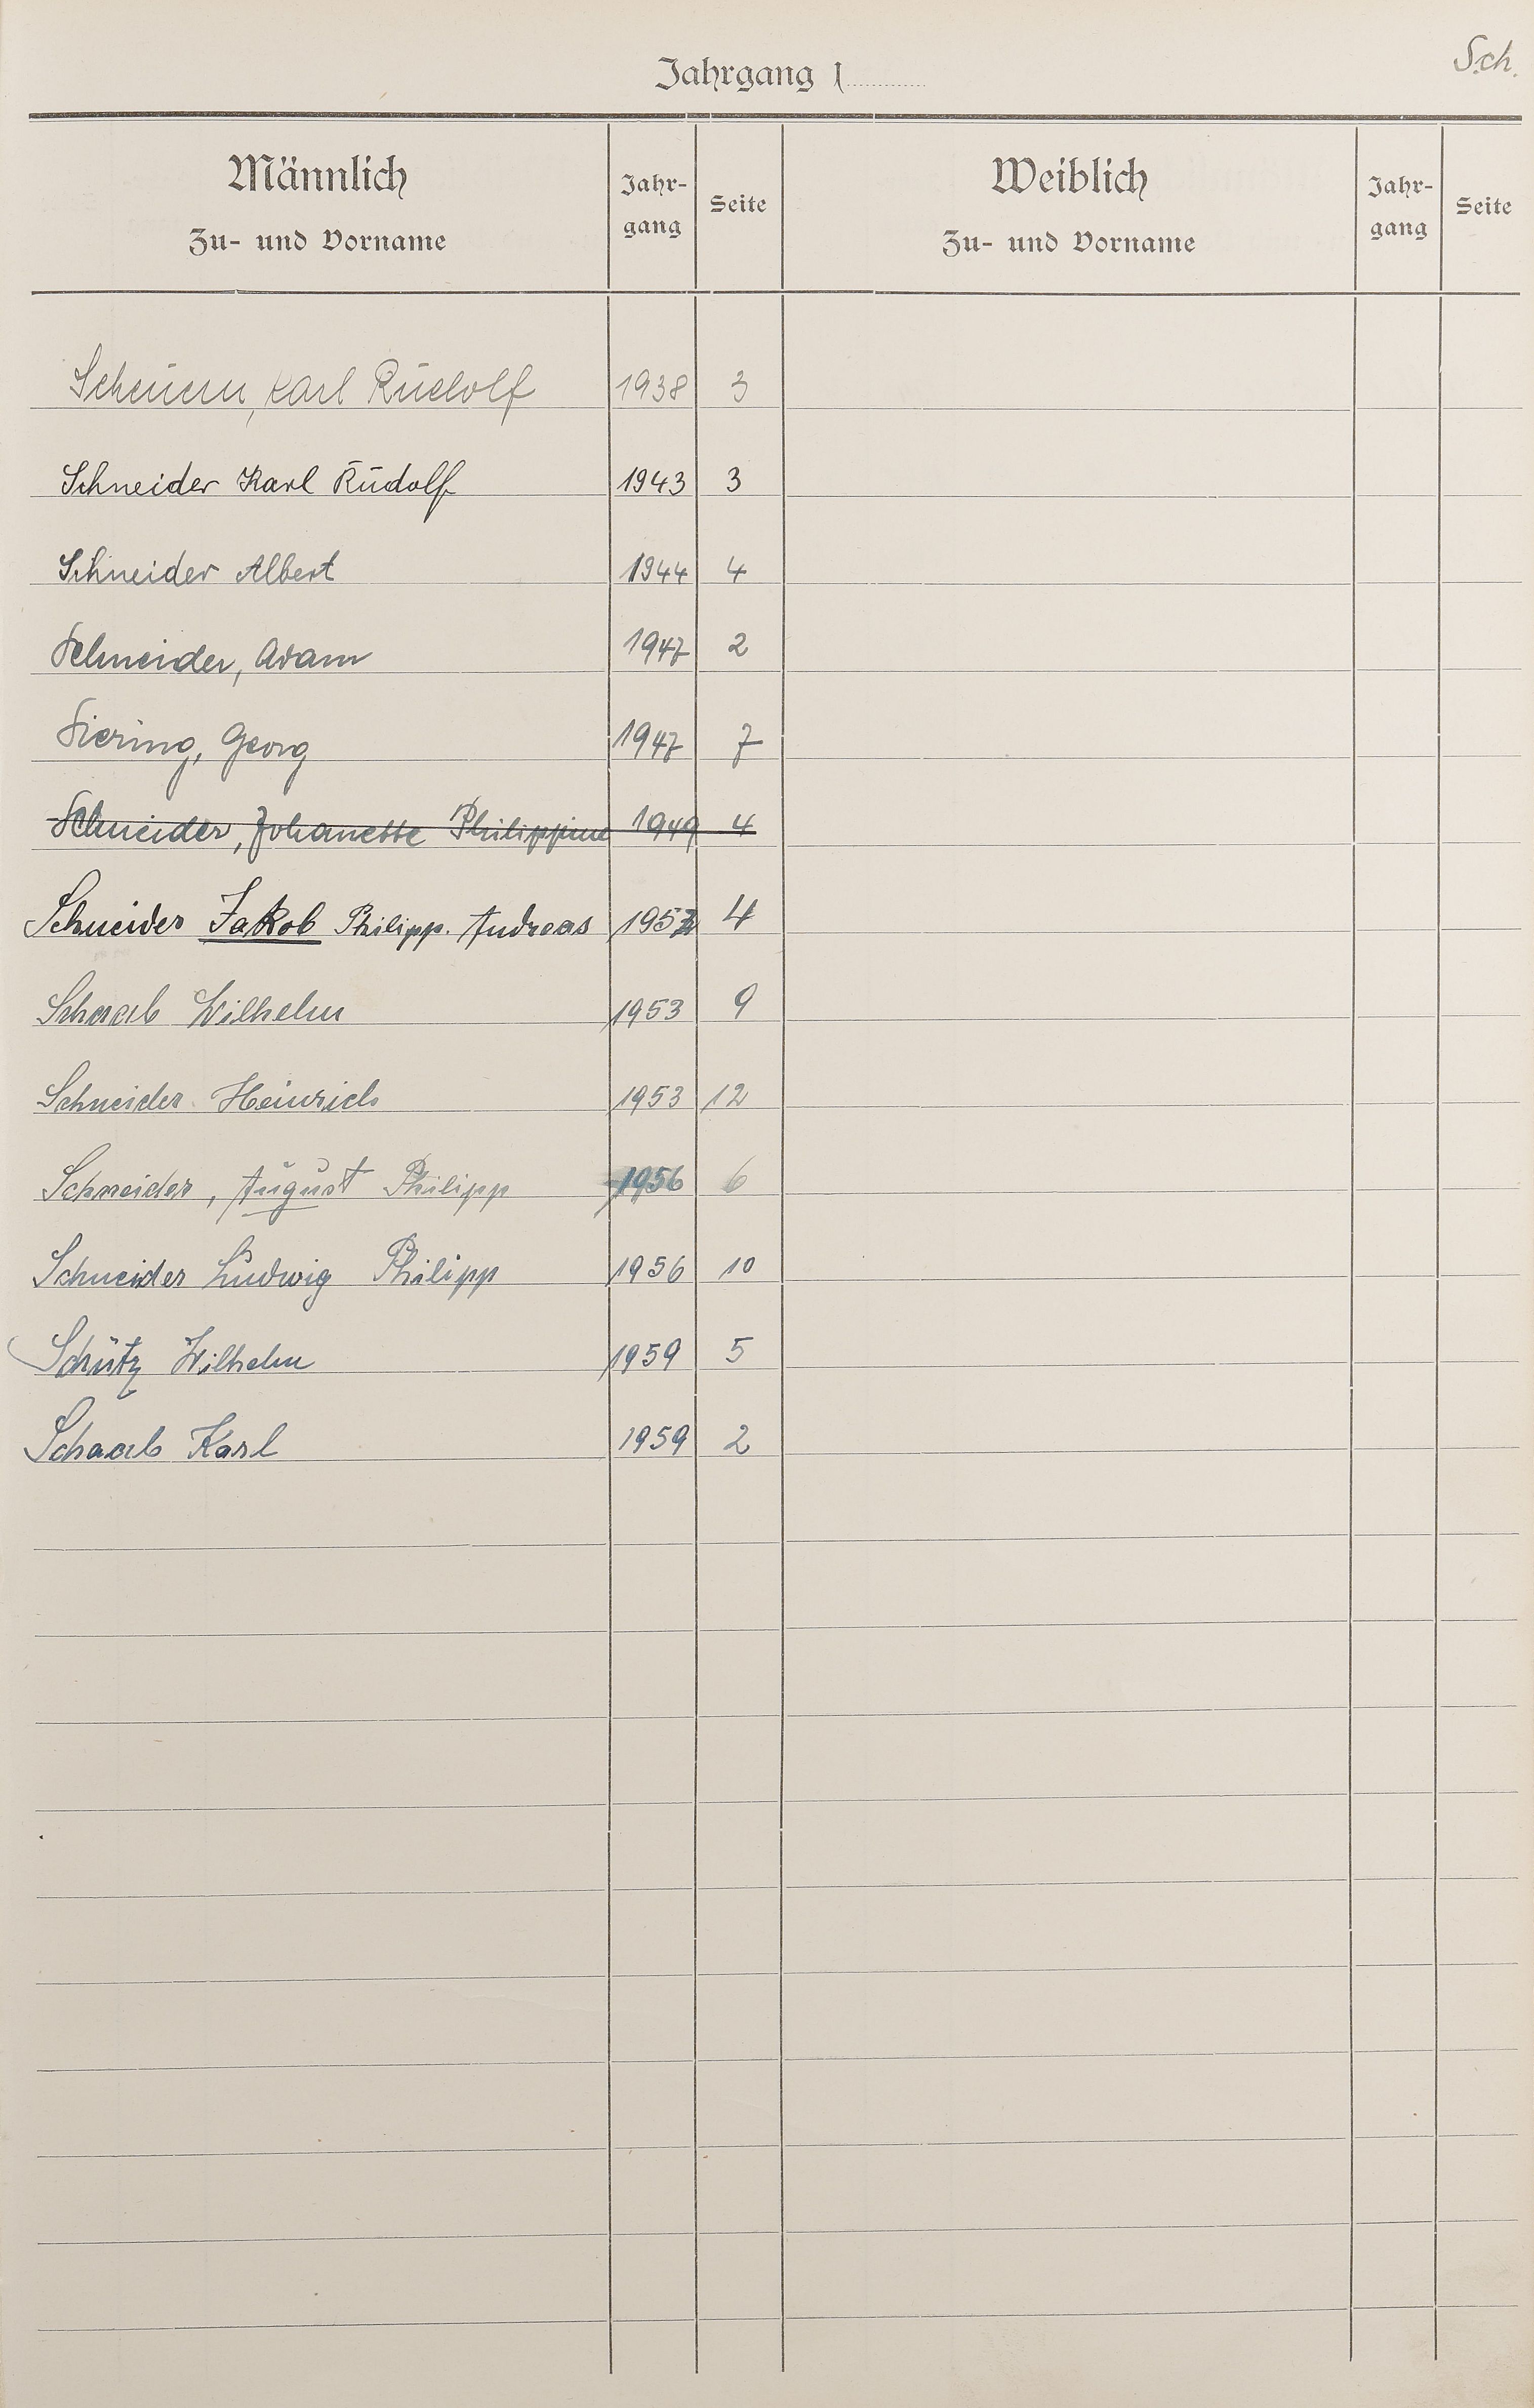 Sch.
Jahrgang 1
Männlich
Zu- und Vorname
Jahr-
gang
Seite
Weiblich
Zu- und Vorname
Jahr-
gang
Seite
Scheuern, Karl Rudolf 1938 3
Schneider Karl Rudolf 1943 3
Schneider Albert 1944 4
Schneider, Adam 1947 2
Siering, Georg 1947 7
Schneider, Johanette Philippine 1949 4
Schneider Jakob Philipp. Andreas 1952 4
Schaab Wilhelm 1953 9
Schneider Heinrich 1953 12
Schneider, August Philipp 1956 6
Schneider Ludwig Philipp 1956 10
Schütz Wilhelm 1959 5
Schaab Karl 1959 2